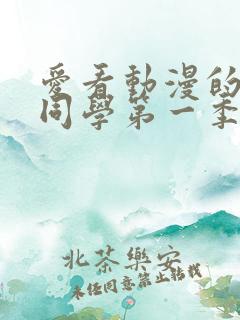 愛看動漫的
同學第一季
北茶樂安
未经同意禁止转载